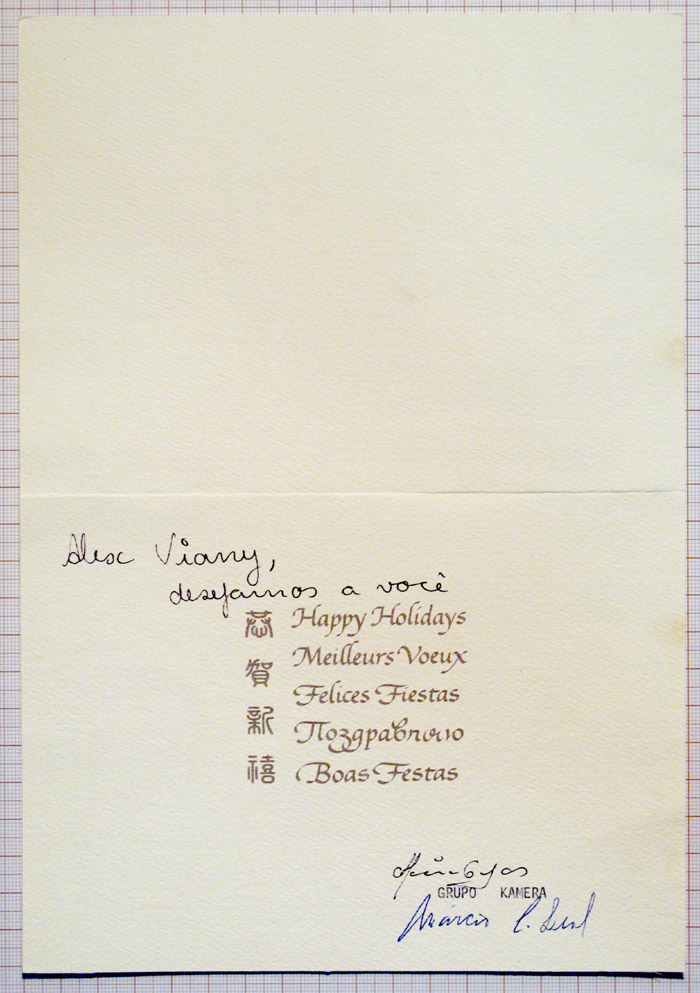 Alex Viany,
desejamos a você
恭賀新禧
Happy Holidays
Meilleurs Voeux
Felices Fiestas
Поздравляю
Boas Festas
GRUPO KAMERA
Márcio